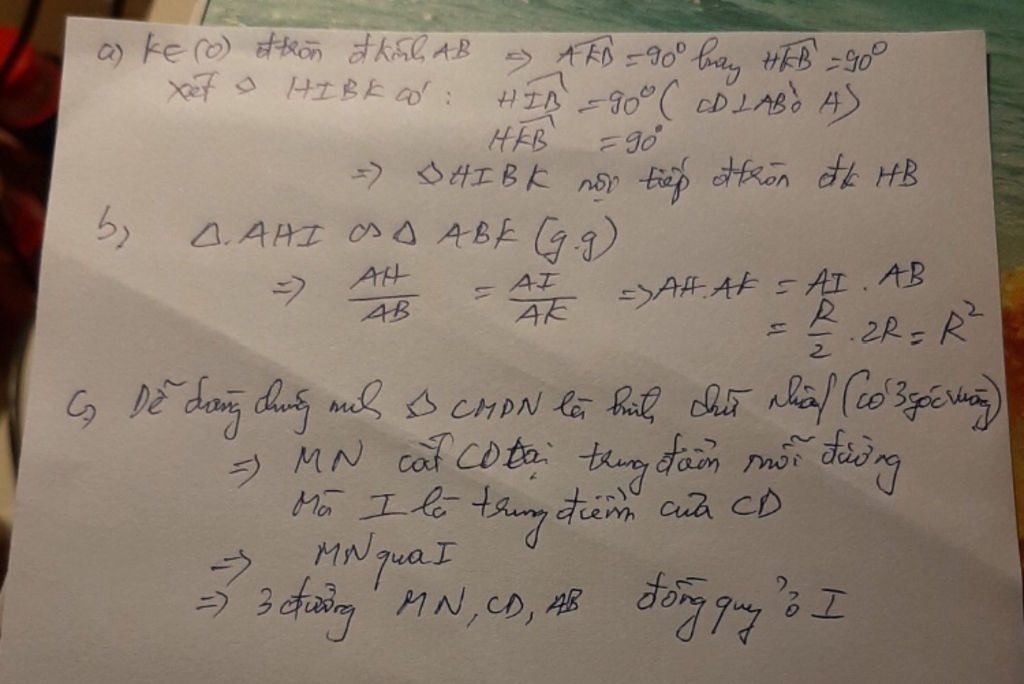 a) K∈(O) đtròn đkính AB ⇒ AKB = 90° hay HKB = 90°
Xét ◇ HIBK có: HIB = 90° (CD⊥AB ở H)
HKB = 90°
⇒ ◇HIBK nội tiếp đtròn đk HB
b, Δ.AHI ∽ Δ ABK (g.g)
⇒ AH/AB = AI/AK ⇒ AH.AK = AI.AB
= R/2 . 2R = R²
c, Dễ dàng chứng minh ◇ CMDN là hình chữ nhật (có 3 góc vuông)
⇒ MN cắt CD tại trung điểm mỗi đường
Mà I là trung điểm của CD
⇒ MN qua I
⇒ 3 đường MN, CD, AB đồng quy ở I